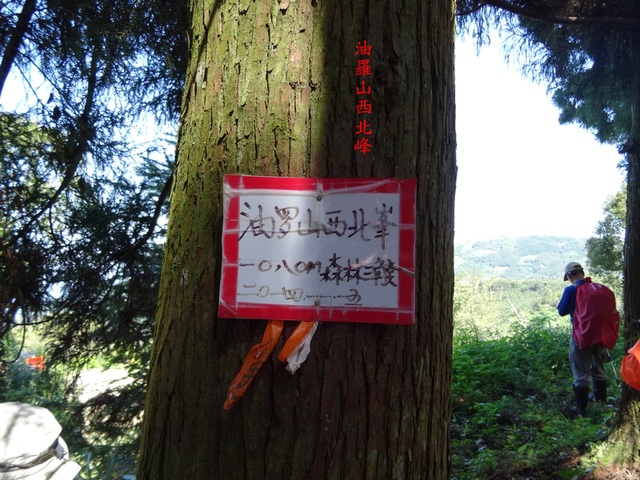 油羅山西北峰
油罗山西北峯
一〇八〇M森林三等
二〇一四.一一.五